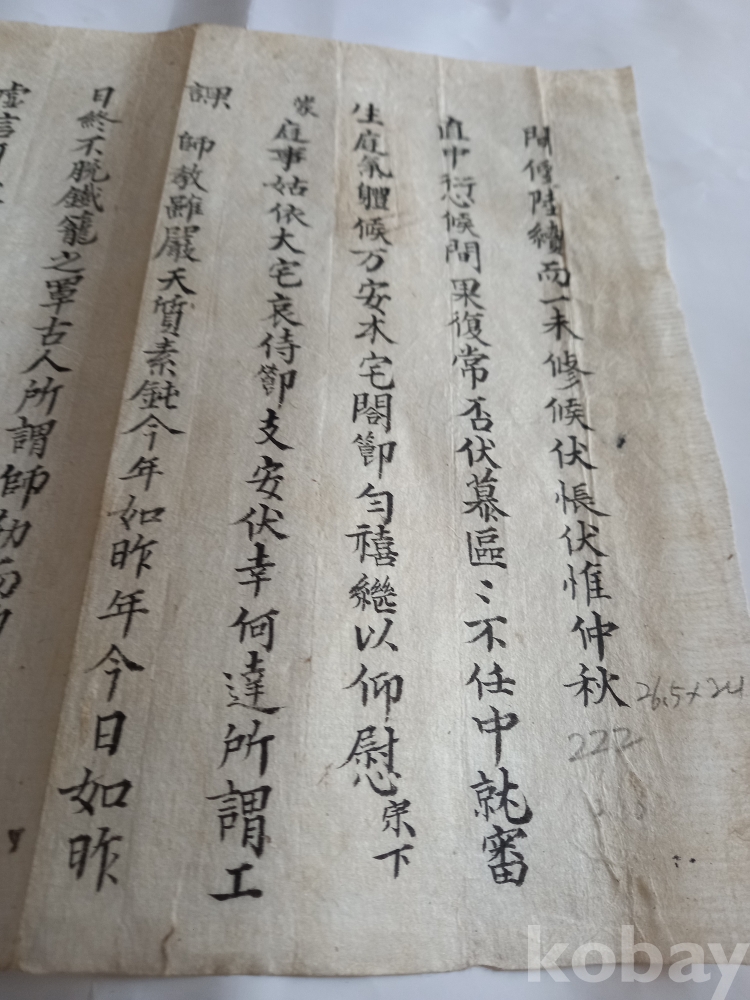 間傳陸續而一未修候伏悵伏惟仲秋
直中行候間果復常否伏慕區〻不任中就審
生庭氣軆候万安本宅閤節勻禧継以仰慰宗下
蒙庭事姑依大宅哀侍節支安伏幸何達所謂工
課師教雖嚴天質素鈍今年如昨年今日如昨
日終不脫鐵籠之罩古人所謂師勞而
虛言
26.5×24
222
kobay